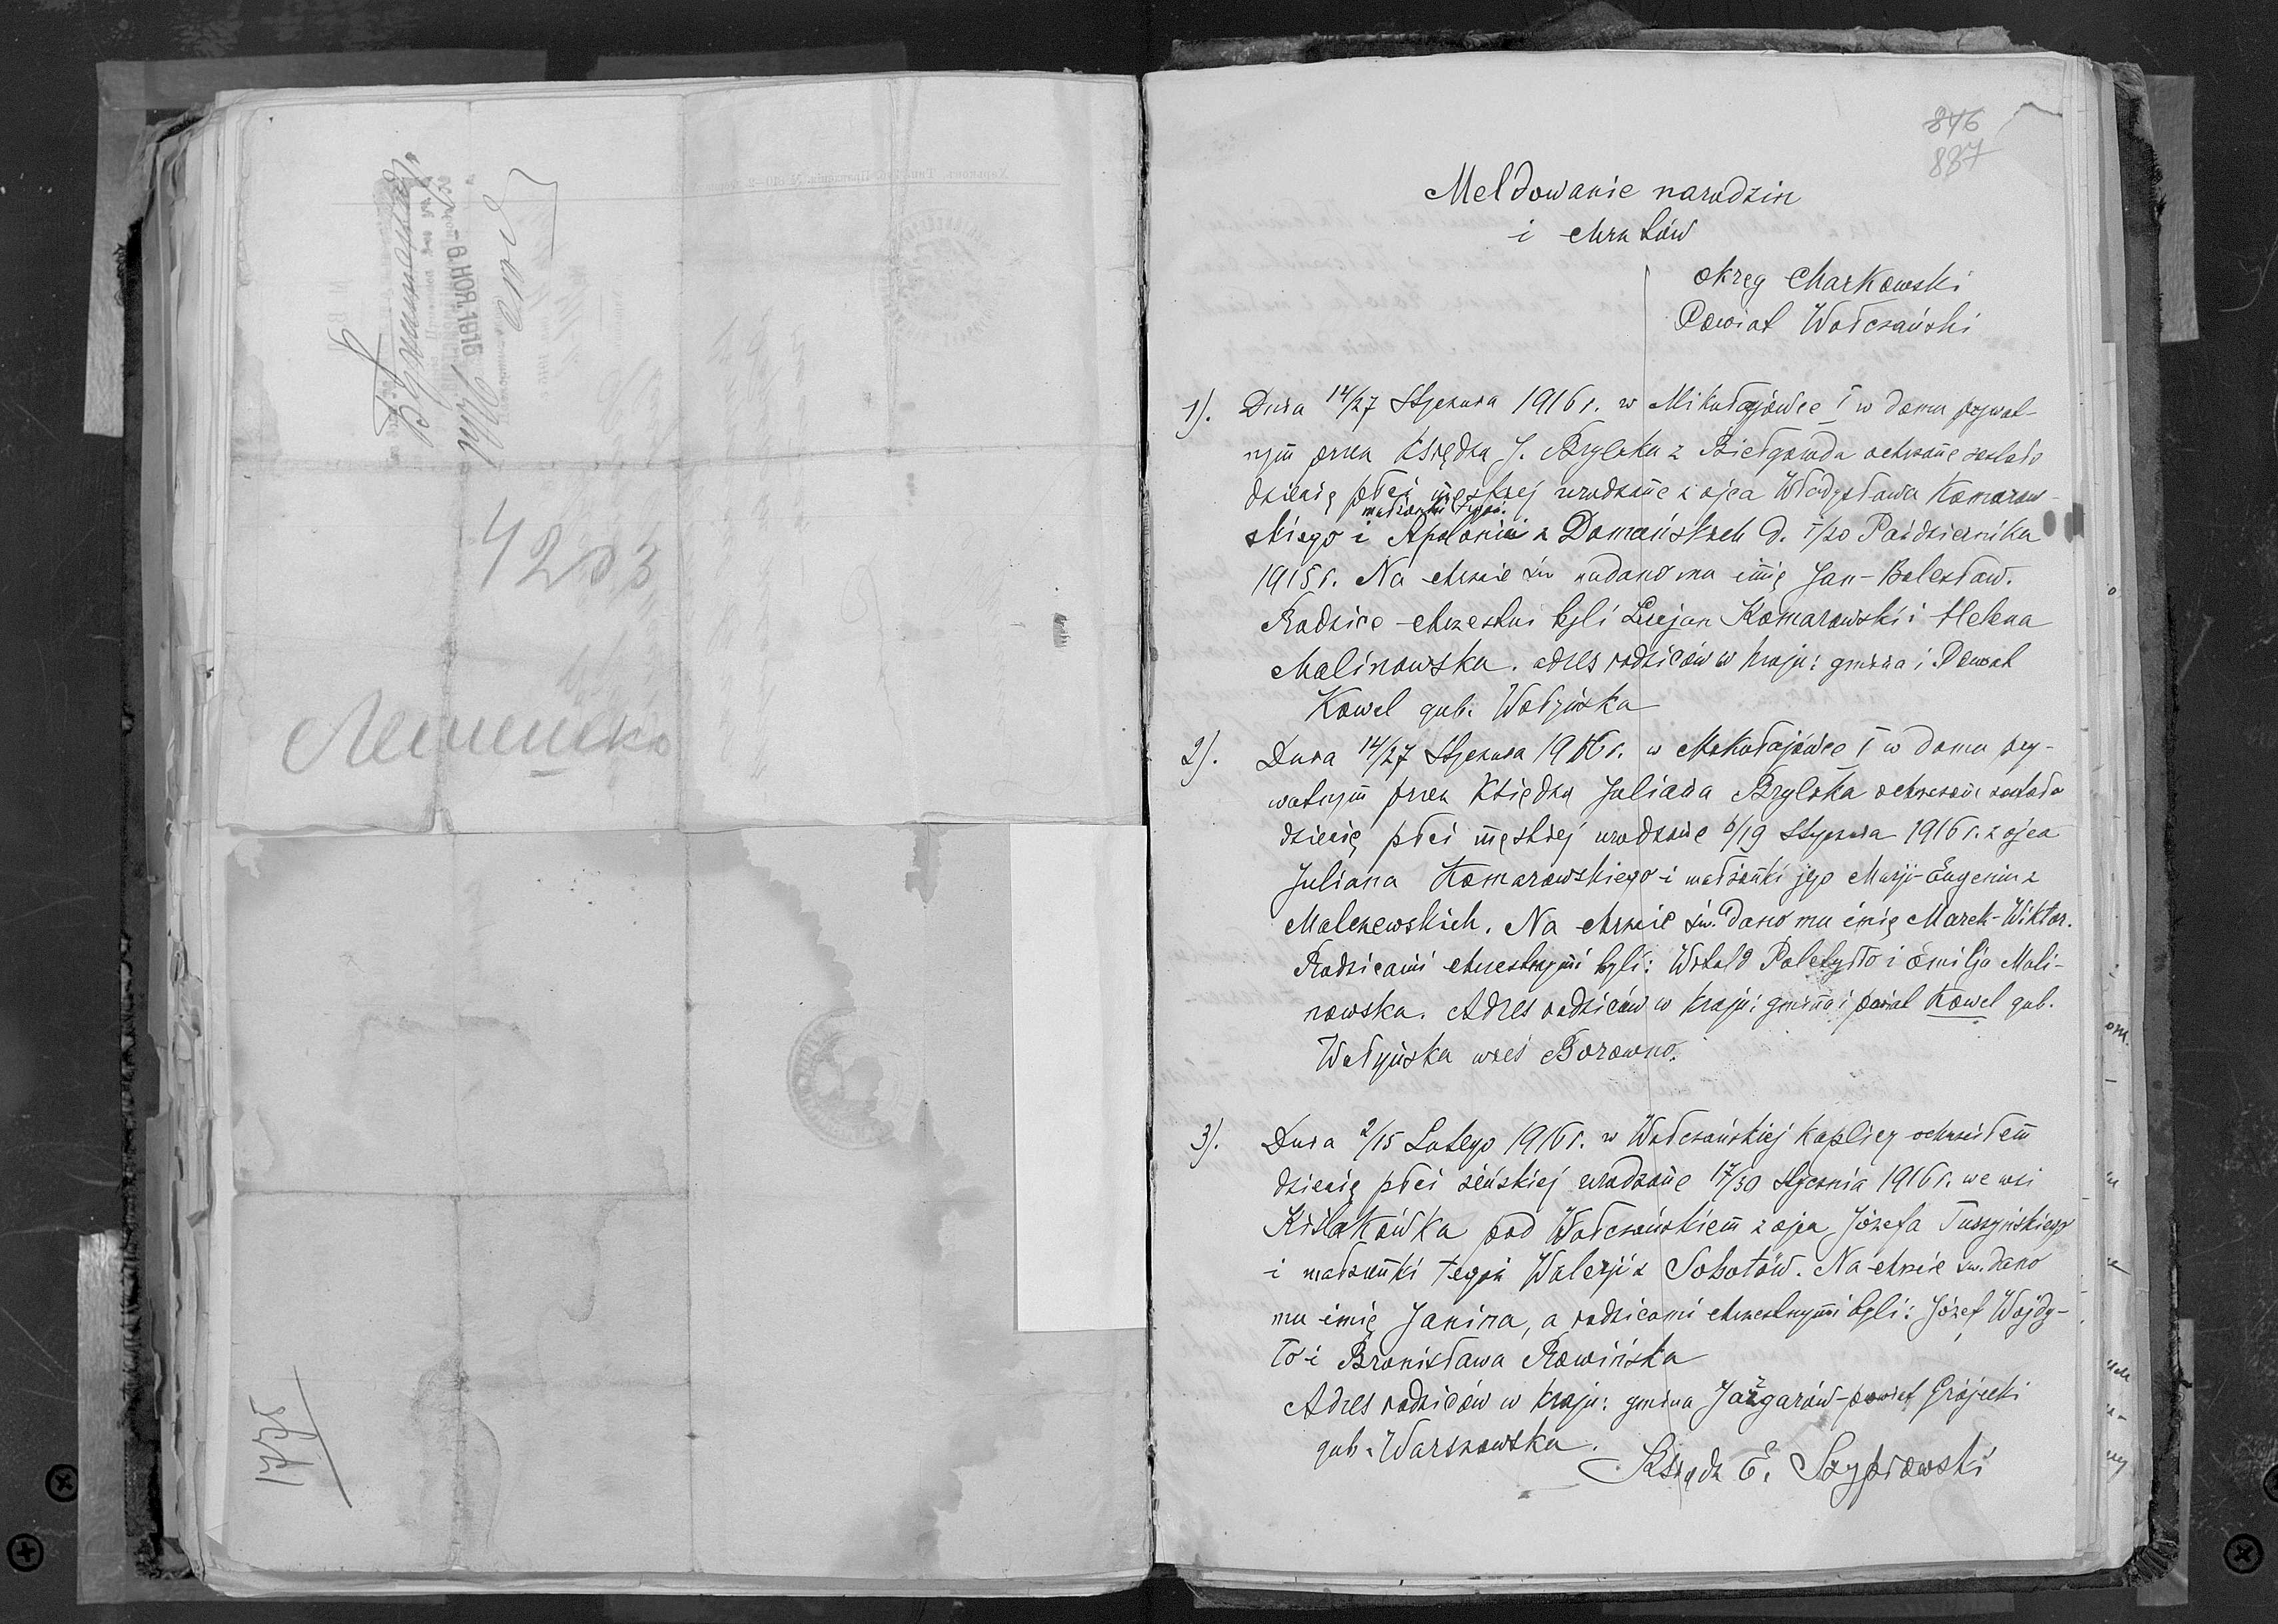 4203
1775
846
887
Meldowanie narodzin
i chrztów
okręg Charkowski
Powiat Wołczański
1). Dnia 14/27 Stycznia 1916 r. w Mikołajówce I w domu prywat-
nym przez Księdza J. Brylska z Biełgoroda ochrzczone zostało
dziecię płci męskiej urodzone z ojca Władysława Komarow-
małżonki tegoż.
skiego i Apolonii z Domańskich d. 7/20 Października
1915 r. Na chrzcie św nadano mu imię Jan-Bolesław.
Rodzice chrzestni byli Lucjan Komarowski i Helena
Malinowska. adres rodziców w kraju: gmina i Powiat
Kowel gub. Wołyńska
2). Dnia 14/27 Stycznia 1916 r. w Mikołajówce I w domu pry-
watnym przez Księdza Juliana Brylska ochrzczone zostało
dziecię płci męskiej urodzone 6/19 Stycznia 1916 r. z ojca
Juliana Komarowskiego i małżonki jego Marji-Eugenii z
Malczewskich. Na chrzcie św. dano mu imię Marek-Wiktor.
Rodzicami chrzestnymi byli: Witold Poletyłło i Emilja Mali-
nowska. Adres rodziców w kraju: gmina i powiat Kowel gub.
Wołyńska wieś Borowno.
3). Dnia 2/15 Lutego 1916 r. w Wołczańskiej kaplicy ochrzciłem
dziecię płci żeńskiej urodzone 17/30 Stycznia 1916 r. we wsi
Kisłakówka pod Wołczańskiem z ojca Józefa Tuszyńskiego
i małżonki tegoż Walerji z Sobotów. Na chrzcie św. dano
mu imię Janina, a rodzicami chrzestnymi byli: Józef Wojdy-
ło i Bronisława Rowińska
Adres rodziców w kraju: gmina Jazgarów-powiat Grójecki
gub. Warszawska.
Ksiądz E. Szyprowski